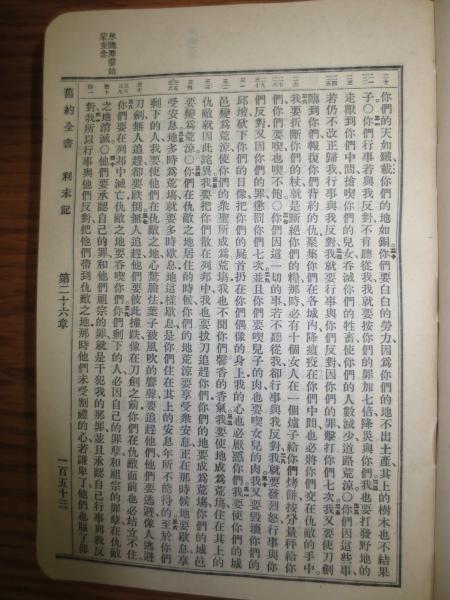 你們的天如鐵載你們的地如銅你們要白白的勞力因為你們的地不出土產其上的樹木也不結果
子○你們行事若與我反對不肯聽從我我就要按你們的罪加七倍降災與你們我也要打發野地的
走獸到你們中間搶喫你們的兒女吞滅你們的牲畜使你們的人數減少道路荒涼○你們因這些事
若仍不改正歸我行事與我反對我就要行事與你們反對因你們的罪擊打你們七次我又要使刀劍
臨到你們報復你們背約的仇聚集你們在各城內降瘟疫在你們中間也必將你們交在仇敵的手中
我要折斷你們的杖就是斷絕你們的糧那時必有十個女人在一個爐子給你們烤餅按分量秤給你
們你們要喫也喫不飽○你們因這一切的事若不聽從我卻行事與我反對我就要發烈怒行事與你
們反對又因你們的罪懲罰你們七次並且你們要喫兒子的肉也要喫女兒的肉我又要毀壞你們的
邱壇砍下你們的日像把你們的屍首扔在你們偶像的身上我的心也必厭惡你們我要使你們的城
邑變為荒涼使你們的衆聖所成為荒場我也不聞你們馨香的香氣我要使地成為荒場住在其上的
仇敵就因此詫異我要把你們散在列邦中我也要拔刀追趕你們你們的地要成為荒場你們的城邑
要變為荒涼○你們在仇敵之地居住的時候你們的地荒涼要享受衆安息正在那時候地要歇息享
受安息地多時為荒場就要多時歇息地這樣歇息是你們住在其上的安息年所不能得的至於你們
剩下的人我要使他們在仇敵之地心驚膽怯葉子被風吹的響聲要追趕他們他們要逃避像人逃避
刀劍無人追趕卻要跌倒無人追趕他們要彼此撞跌像在刀劍之前你們在仇敵面前也必站立不住
你們要在列邦中滅亡仇敵之地要吞喫你們你們剩下的人必因自己的罪孽和祖宗的罪孽在仇敵
之地消滅○他們要承認自己的罪和他們祖宗的罪就是干犯我的那罪並且承認自己行事與我反
對我所以行事與他們反對把他們帶到仇敵之地那時他們未受割禮的心若謙卑了他們也服了罪
舊約全書 利未記 第二十六章 一百五十三